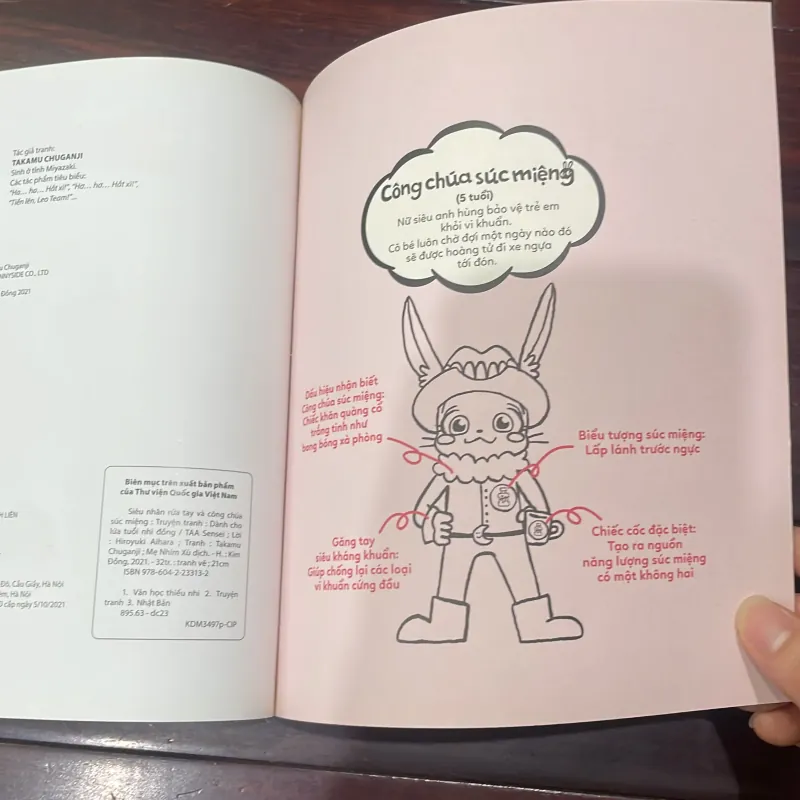 Tác giả tranh:
TAKAMU CHUGANJI
Sinh ở tỉnh Miyazaki.
Các tác phẩm tiêu biểu:
"Ha... ha... Hắt xì!", "Hơ... hơ... Hắt xì!",
"Tiến lên, Leo Team!"...
Chuganji
CO., LTD
Đồng 2021
LIÊN
Đô, Cầu Giấy, Hà Nội
Hà Nội
cấp ngày 5/10/2021
Biên mục trên xuất bản phẩm
của Thư viện Quốc gia Việt Nam
Siêu nhân rửa tay và công chúa
súc miệng : Truyện tranh : Dành cho
lứa tuổi nhi đồng / TAA Sensei ; Lời
: Hiroyuki Aihara ; Tranh : Takamu
Chuganji ; Mẹ Nhím Xù dịch. - H. : Kim
Đồng, 2021. - 32tr. : tranh vẽ ; 21cm
ISBN 978-604-2-23313-2
1. Văn học thiếu nhi 2. Truyện
tranh 3. Nhật Bản
895.63 - dc23
KDM3497p-CIP
Công chúa súc miệng
(5 tuổi)
Nữ siêu anh hùng bảo vệ trẻ em
khỏi vi khuẩn.
Cô bé luôn chờ đợi một ngày nào đó
sẽ được hoàng tử đi xe ngựa
tới đón.
Dấu hiệu nhận biết
Công chúa súc miệng:
Chiếc khăn quàng cổ
trắng tinh như
bong bóng xà phòng
Biểu tượng súc miệng:
Lấp lánh trước ngực
Găng tay
siêu kháng khuẩn:
Giúp chống lại các loại
vi khuẩn cứng đầu
Chiếc cốc đặc biệt:
Tạo ra nguồn
năng lượng súc miệng
có một không hai